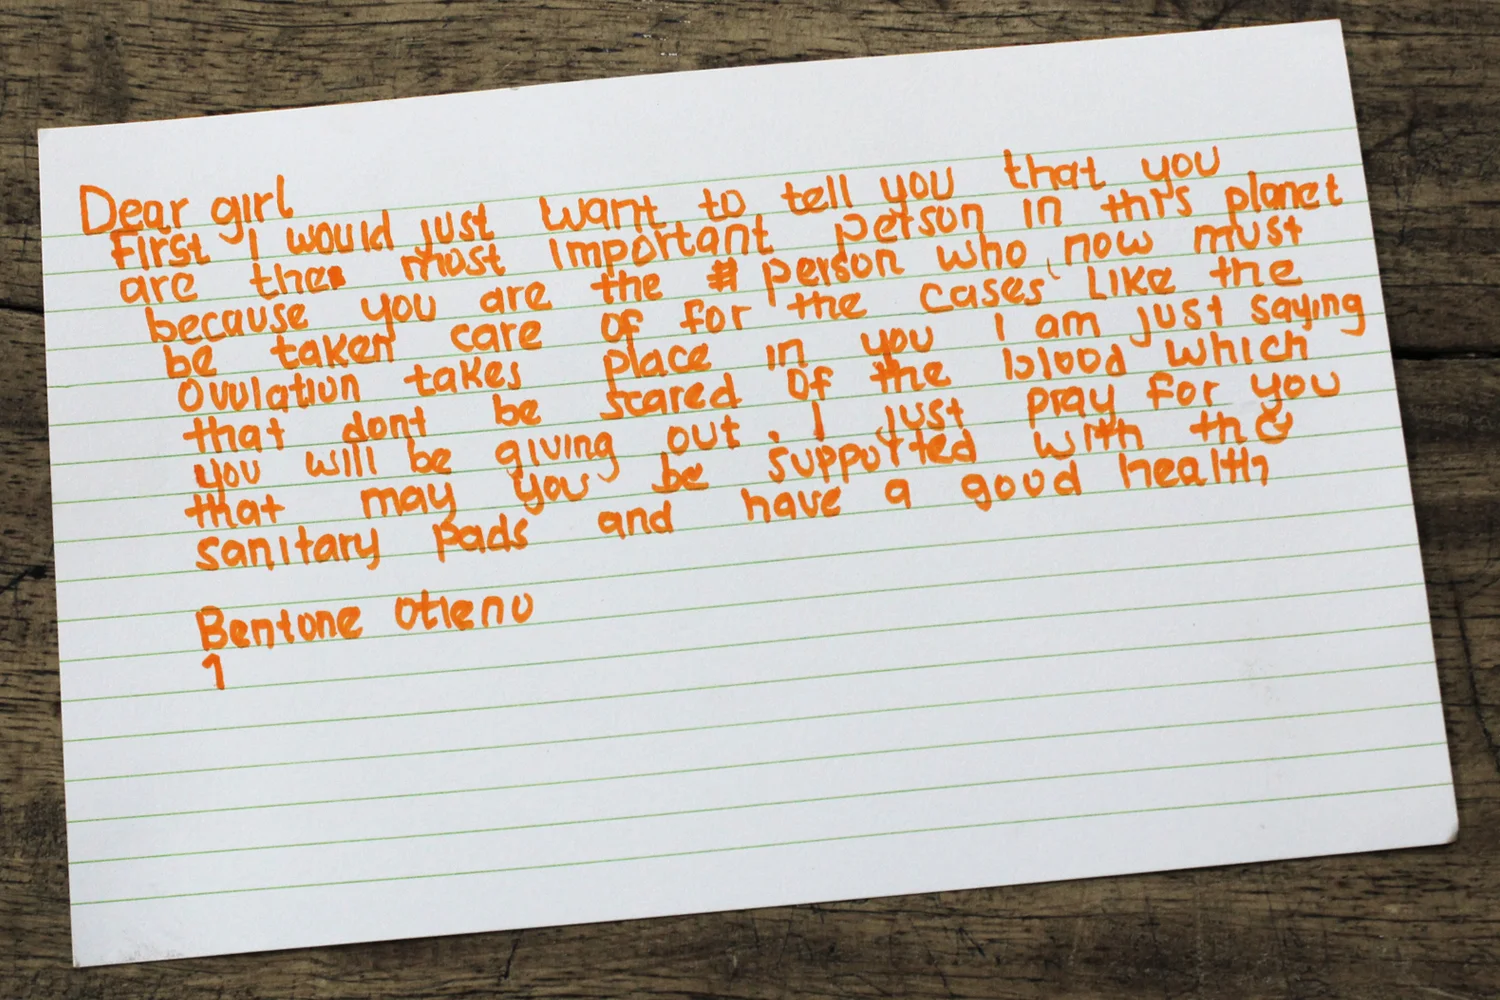 Dear girl
First I would just want to tell you that you
are the most important person in this planet
because you are the # person who now must
be taken care of for the cases like the
Ovulation takes place in you I am just saying
that dont be scared of the blood which
you will be giving out. I just pray for you
that may you be supported with the
sanitary pads and have a good health
Bentone Otieno
1